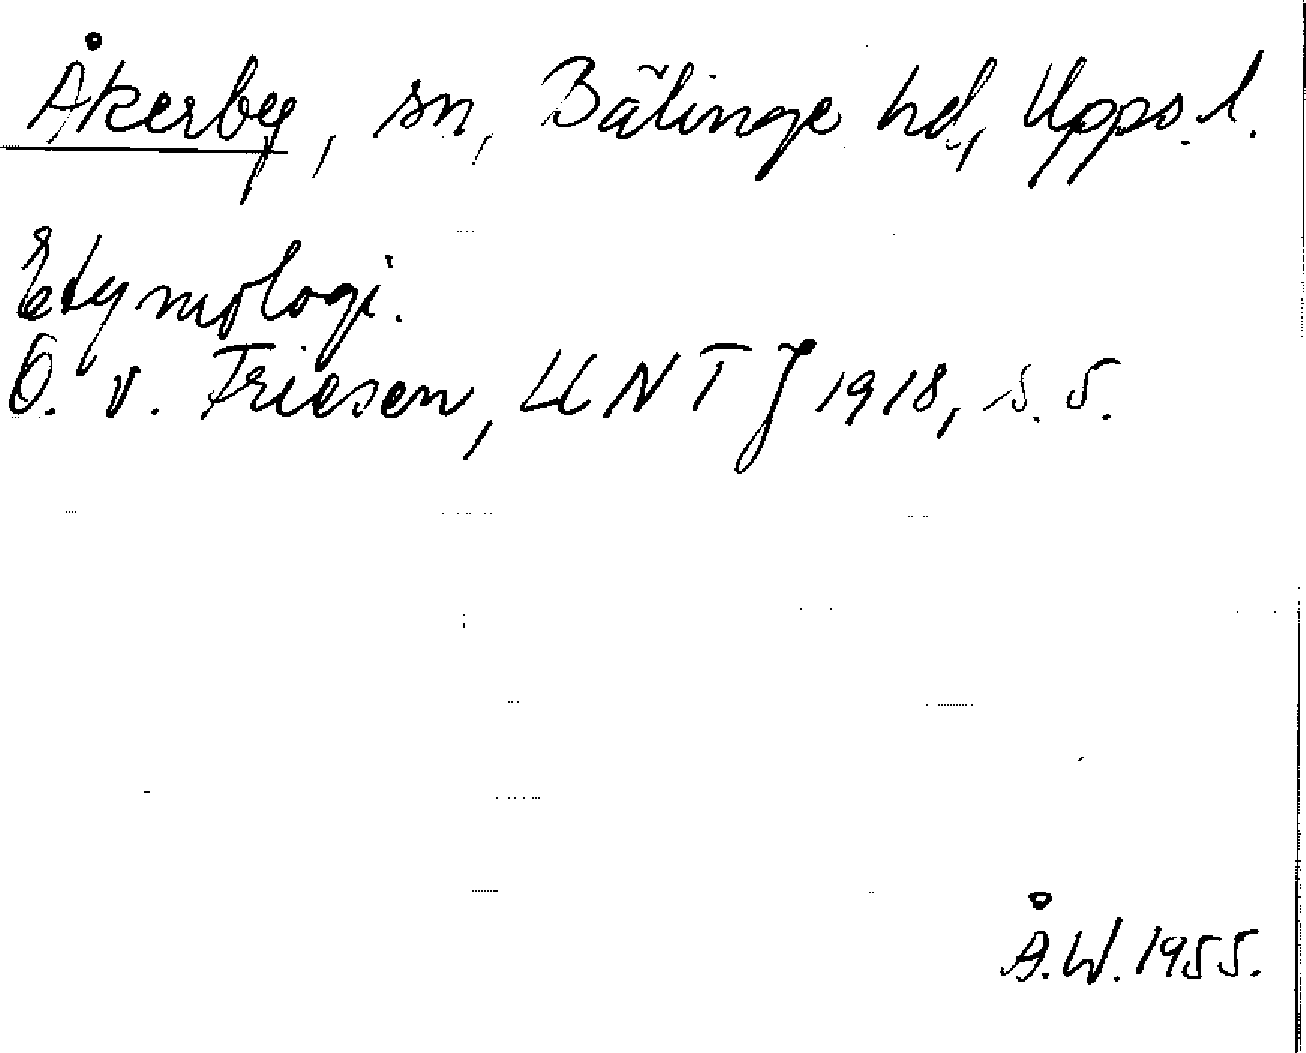 Åkerby, sn, Bälinge hd, Upps. l.
Etymologi.
O. v. Friesen, UNTJ 1918, s. 5.
Å.W. 1955.